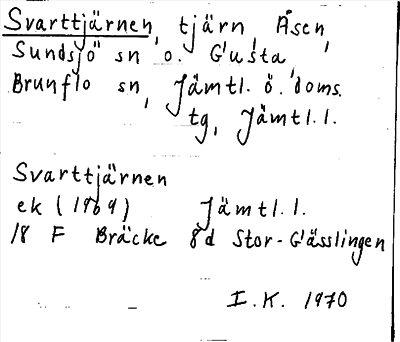 Svarttjärnen, tjärn, Åsen,
Sundsjö sn o. Gusta,
Brunflo sn, Jämtl. ö. doms.
tg, Jämtl. l.
Svarttjärnen
ek (1969) Jämtl. l.
18 F Bräcke 8d Stor-Gässlingen
I. K. 1970